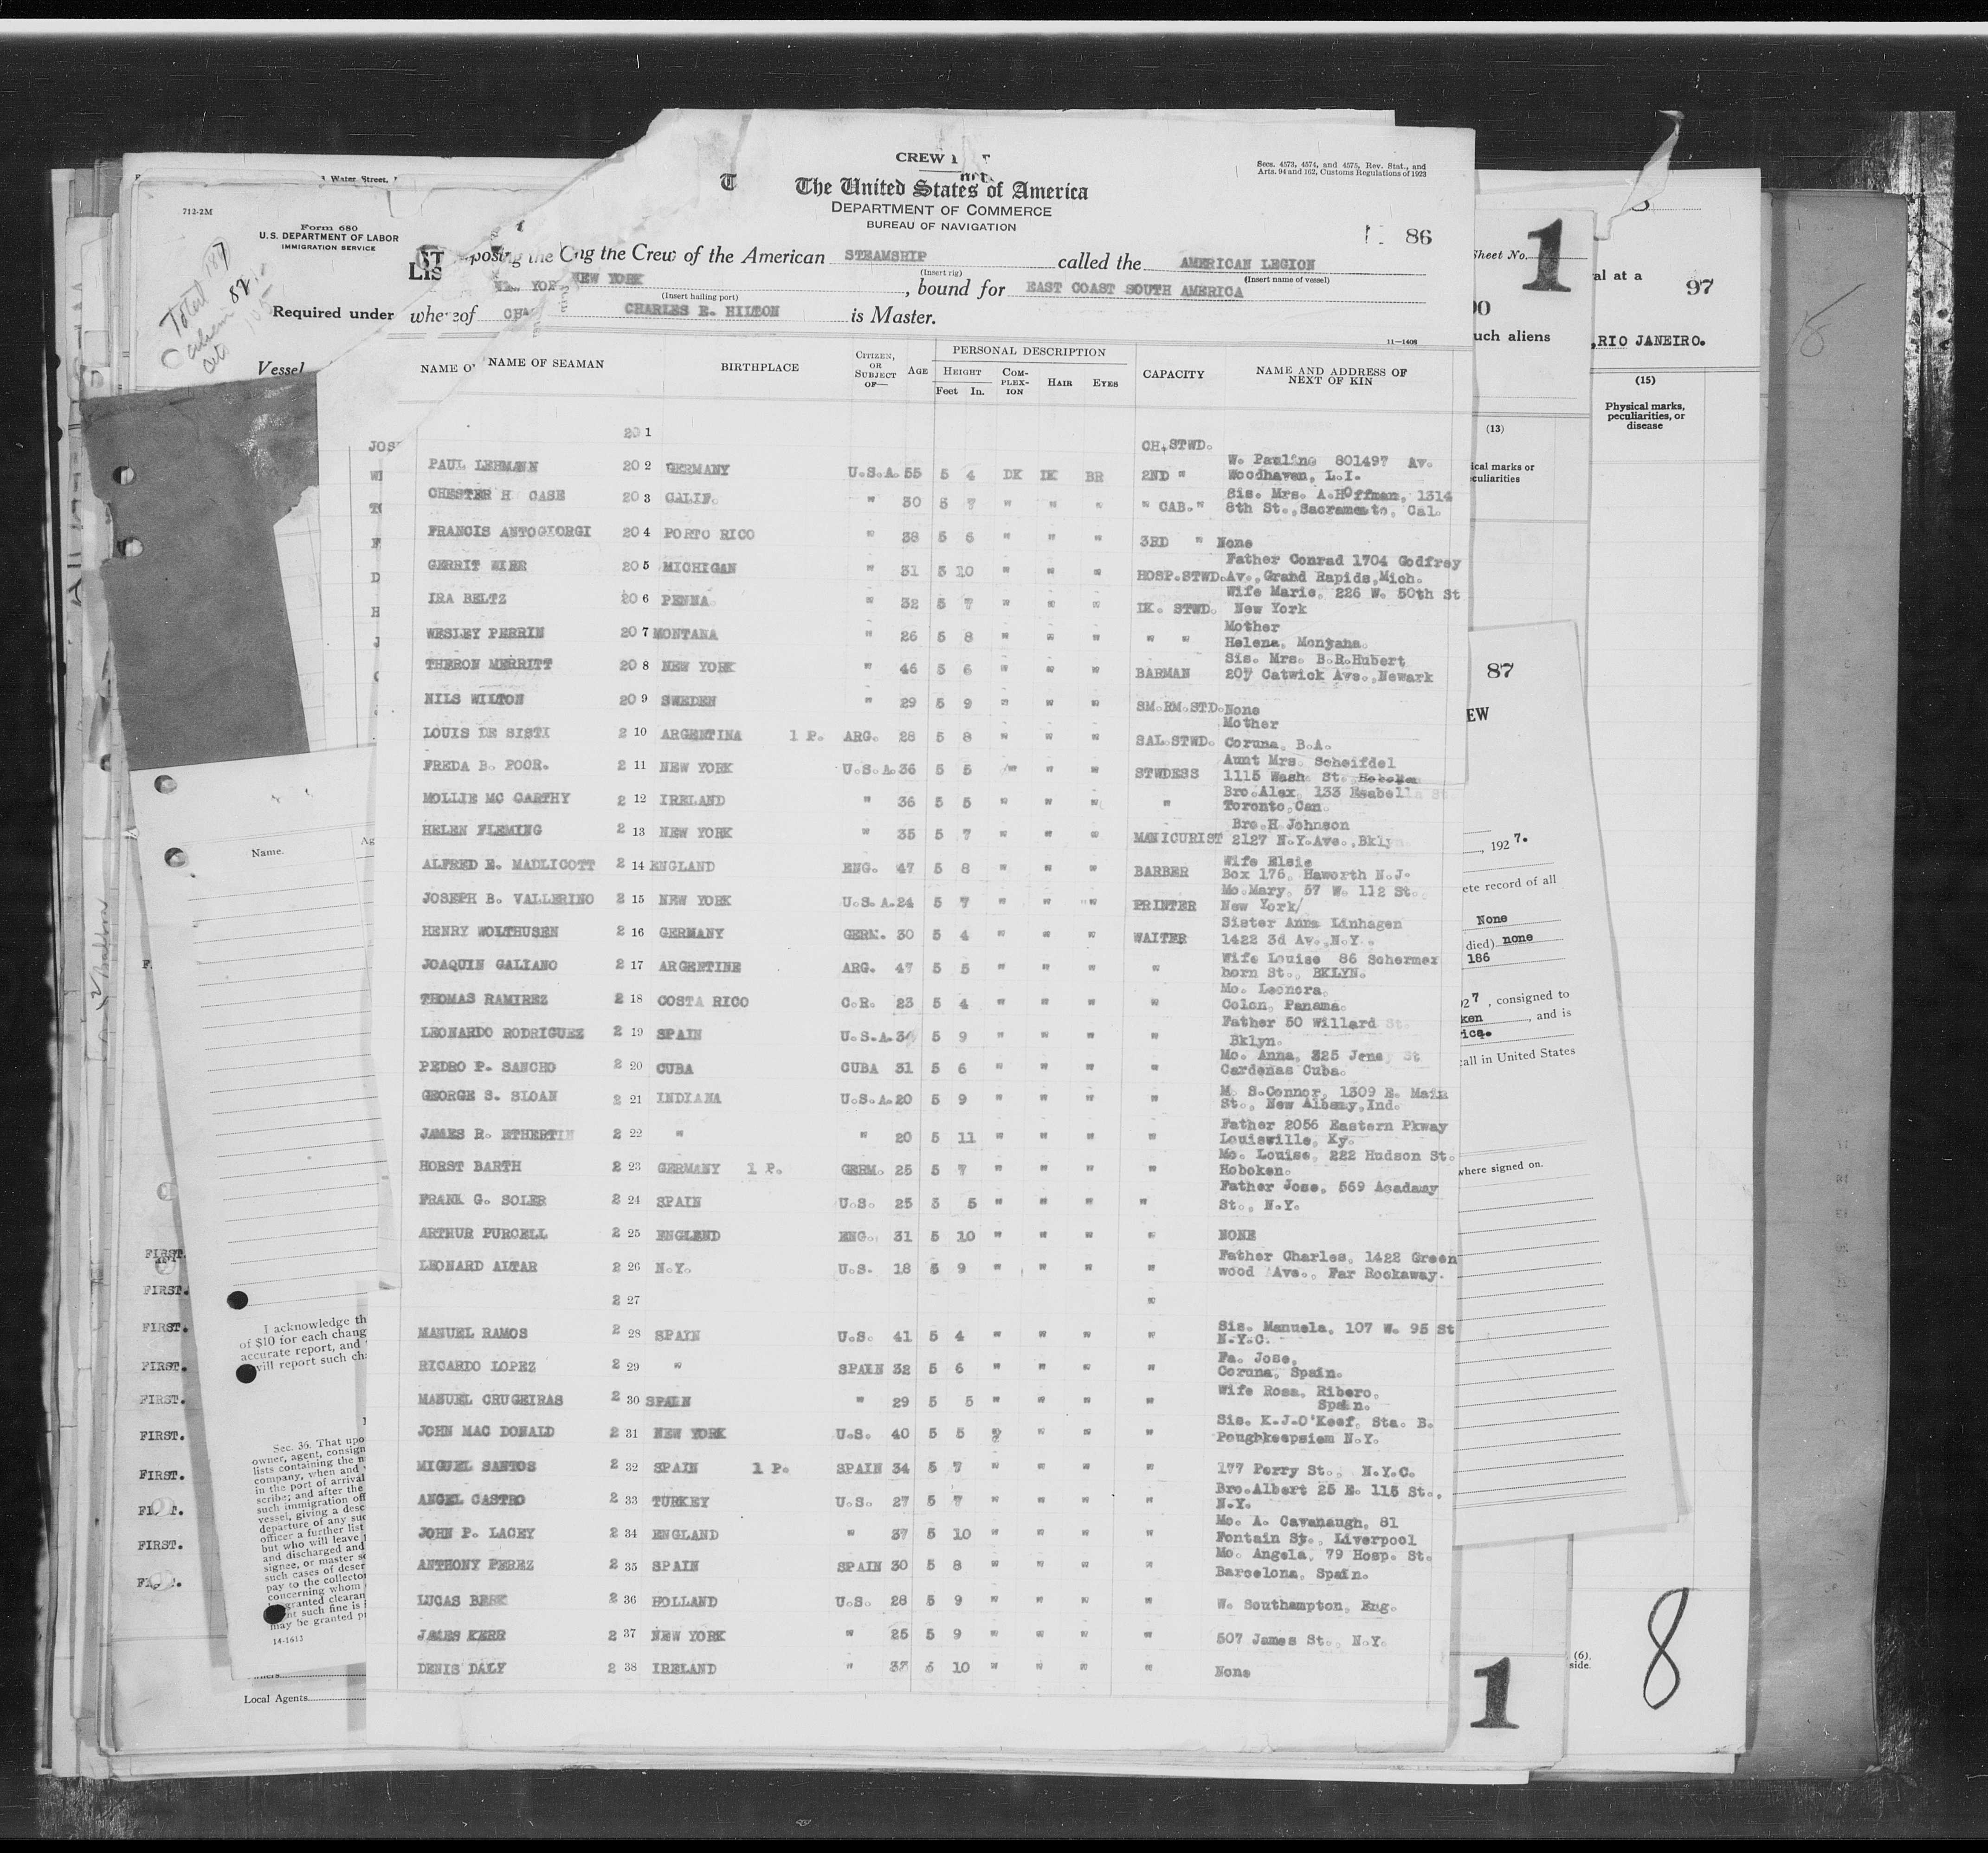 CREW
Secs. 4573, 4574, and 4575, Rev. Stat., and
Arts. 94 and 162, Customs Regulations of 1923
The United States of America
DEPARTMENT OF COMMERCE
BUREAU OF NAVIGATION
86
712-2M
Form 680
U.S. DEPARTMENT OF LABOR
IMMIGRATION SERVICE
Water Street,
Required under
Vessel
LIS posing the C ng the Crew of the American STEAMSHIP called the AMERICAN LEGION
(Insert rig) (Insert name of vessel)
NEW YORK , bound for EAST COAST SOUTH AMERICA
(Insert hailing port)
whereof CHARLES E. HILTON is Master.
11—1408
NAME OF SEAMAN BIRTHPLACE CITIZEN, OR SUBJECT OF— AGE PERSONAL DESCRIPTION CAPACITY NAME AND ADDRESS OF NEXT OF KIN
HEIGHT COM-PLEX-ION HAIR EYES
Feet In.
201 CH. STWD.
PAUL LEHMANN 202 GERMANY U.S.A. 55 5 4 DK IK BR 2ND " W. Pauline 801497 Av.
Woodhaven, L.I.
CHESTER H CASE 203 CALIF. " 30 5 7 " " " " CAB. " Sis. Mrs. A.Hoffman, 1314
8th St., Sacramento, Cal.
FRANCIS ANTOGIORGI 204 PORTO RICO " 38 5 6 " " " 3RD " None
GERRIT WIER 205 MICHIGAN " 31 5 10 " " " HOSP.STWD. Father Conrad 1704 Godfrey
Av., Grand Rapids, Mich.
IRA BELTZ 206 PENNA. " 32 5 7 " " " IK. STWD. Wife Marie, 226 W. 50th St
New York
WESLEY PERRIN 207 MONTANA " 26 5 8 " " " " " Mother
Helena, Monyana.
THERON MERRITT 208 NEW YORK " 46 5 6 " " " BARMAN Sis. Mrs. B.R.Hubert
207 Catwick Ave., Newark
NILS WILTON 209 SWEDEN " 29 5 9 " " " SM.RM.STD. None
LOUIS DE SISTI 210 ARGENTINA 1 P. ARG. 28 5 8 " " " SAL.STWD. Mother
Coruna, B.A.
FREDA B. POOR. 211 NEW YORK U.S.A. 36 5 5 " " " STWDESS Aunt Mrs. Scheifdel
1115 Wash. St. Hoboken
MOLLIE MC CARTHY 212 IRELAND " 36 5 5 " " " " Bro.Alex, 133 Esabella St
Toronto,Can.
HELEN FLEMING 213 NEW YORK " 35 5 7 " " " MANICURIST Bro.H Johnson
2127 N.Y.Ave., Bklyn
ALFRED E. MADLICOTT 214 ENGLAND ENG. 47 5 8 " " " BARBER Wife Elsie
Box 176, Haworth N.J.
JOSEPH B. VALLERINO 215 NEW YORK U.S.A. 24 5 7 " " " PRINTER Mo.Mary, 57 W. 112 St.
New York/
HENRY WOLTHUSEN 216 GERMANY GERM. 30 5 4 " " " WAITER Sister Anna Linhagen
1422 3d Av., N.Y.
JOAQUIN GALIANO 217 ARGENTINE ARG. 47 5 5 " " " " Wife Louise 86 Schermer
horn St., BKLYN.
THOMAS RAMIREZ 218 COSTA RICO C.R. 23 5 4 " " " " Mo. Leonora,
Colon, Panama.
LEONARDO RODRIGUEZ 219 SPAIN U.S.A. 34 5 9 " " " " Father 50 Willard St.
Bklyn.
PEDRO P. SANCHO 220 CUBA CUBA 31 5 6 " " " " Mo. Anna, 325 Jene St
Cardenas Cuba.
GEORGE S. SLOAN 221 INDIANA U.S.A. 20 5 9 " " " " M. S.Connor, 1309 E. Main
St., New Albany, Ind.
JAMES R. ETHERTIN 222 " " 20 5 11 " " " " Father 2056 Eastern Pkway
Louisville, Ky.
HORST BARTH 223 GERMANY 1 P. GERM. 25 5 7 " " " " Mo. Louise, 222 Hudson St.
Hoboken.
FRANK G. SOLER 224 SPAIN U.S. 25 5 5 " " " " Father Jose, 569 Acadamy
St., N.Y.
ARTHUR PURCELL 225 ENGLEND ENG. 31 5 10 " " " " NONE
LEONARD ALTAR 226 N.Y. U.S. 18 5 9 " " " " Father Charles, 1422 Green
wood Ave., Far Rockaway.
227 "
MANUEL RAMOS 228 SPAIN U.S. 41 5 4 " " " " Sis. Manuela, 107 W. 95 St
N.Y.C.
RICARDO LOPEZ 229 " SPAIN 32 5 6 " " " " Fa. Jose,
Coruna, Spain.
MANUEL CRUGEIRAS 230 SPAIN " 29 5 5 " " " " Wife Rosa, Ribero,
Spain.
JOHN MAC DONALD 231 NEW YORK U.S. 40 5 5 " " " " Sis. K.J.O'Keef, Sta. B.
Poughkeepsiem N.Y.
MIGUEL SANTOS 232 SPAIN 1 P. SPAIN 34 5 7 " " " " 177 Perry St., N.Y.C.
ANGEL CASTRO 233 TURKEY U.S. 27 5 7 " " " " Bro.Albert 25 E. 115 St.,
N.Y.
JOHN P. LACEY 234 ENGLAND " 37 5 10 " " " " Mo. A. Cavanaugh, 81
Fontain Sy., Liverpool
ANTHONY PEREZ 235 SPAIN SPAIN 30 5 8 " " " " Mo. Angela, 79 Hosp. St.
Barcelona, Spain.
LUCAS BEEK 236 HOLLAND U.S. 28 5 9 " " " " W. Southampton, Eng.
JAMES KERR 237 NEW YORK " 25 5 9 " " " " 507 James St., N.Y.
DENIS DALY 238 IRELAND " 10 " " " " None
Name.
I acknowledge th
of $10 for each chang
accurate report, and
will report such cha
Sec. 36. That upo
owner, agent, consign
lists containing the n
company, when and
in the port of arrival
scribe; and after the
such immigration off
vessel, giving a desc
departure of any suc
officer a further list
but who will leave
and discharged and
signee, or master s
such cases of deser
pay to the collecto
concerning whom
granted clearan
such fine is
may be granted p
14-1613
Local Agents
FIRST.
FIRST.
FIRST.
FIRST.
FIRST.
FIRST.
FIRST.
FIRST.
Sheet No. 1
uch aliens
(13)
ical marks or
culiarities
87
EW
, 1927.
ete record of all
None
died) none
186
927 , consigned to
ken , and is
rica.
call in United States
where signed on.
1
al at a
97
RIO JANEIRO.
(15)
Physical marks,
peculiarities, or
disease
(6).
side.
8